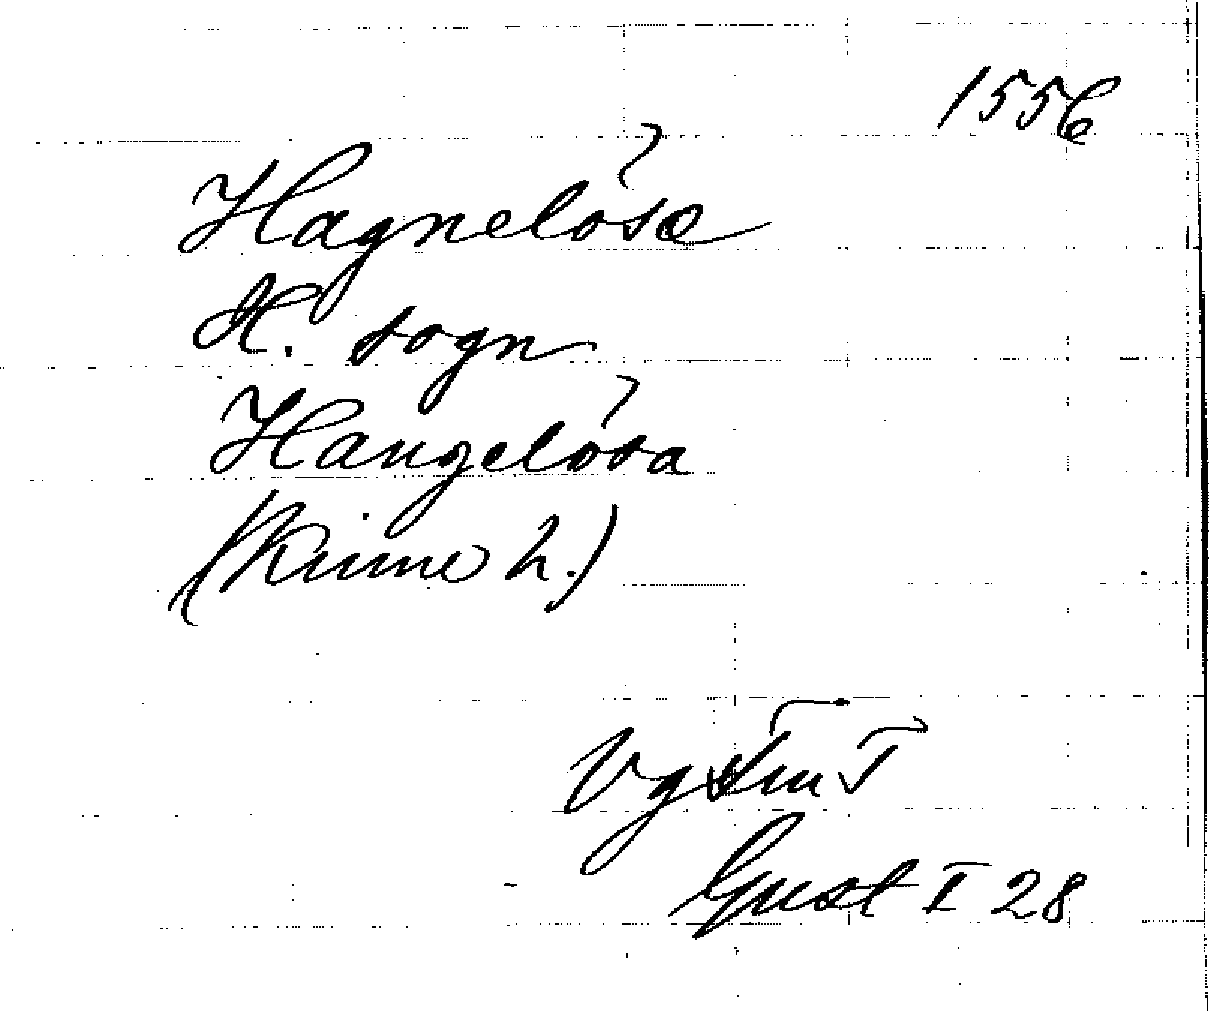 1556
Hagnelösæ
H. sogn
Hangelösa
(Kinne h.)
Vg Tiu T
Gust I 28